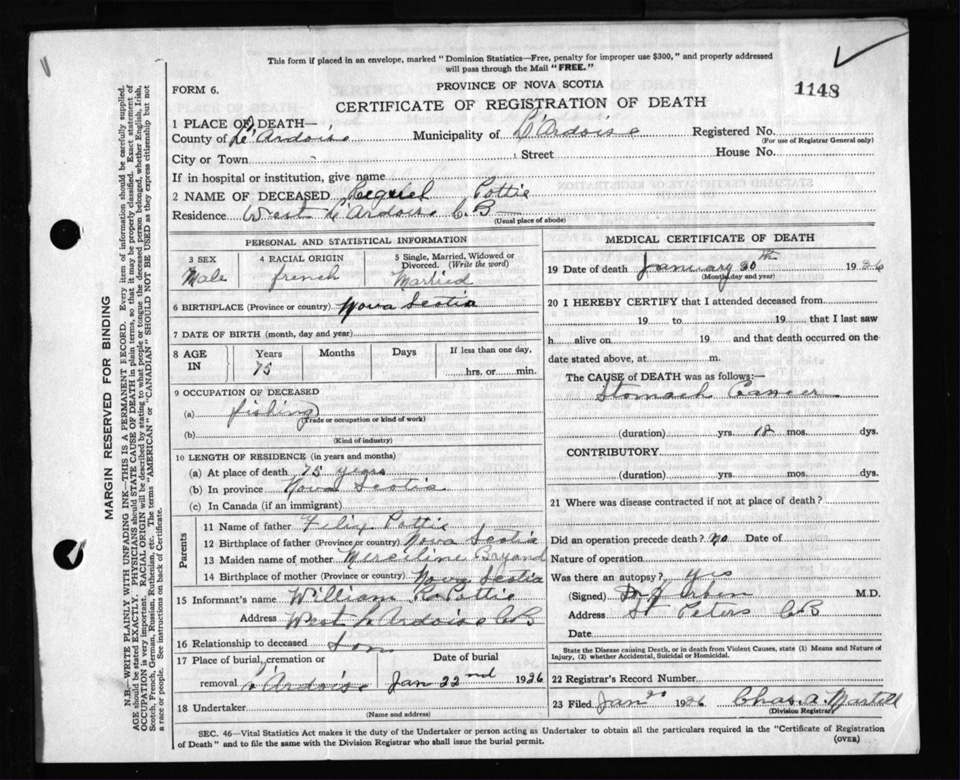 This form if placed in an envelope, marked "Dominion Statistics—Free, penalty for improper use $300," and properly addressed
will pass through the Mail "FREE."
FORM 6.
PROVINCE OF NOVA SCOTIA
1148
CERTIFICATE OF REGISTRATION OF DEATH
1 PLACE OF DEATH—
County of L'Ardoise Municipality of L'Ardoise Registered No.
(For use of Registrar General only)
City or Town Street House No.
If in hospital or institution, give name
2 NAME OF DECEASED Pottie
Residence West L'Ardoise C.B
(Usual place of abode)
PERSONAL AND STATISTICAL INFORMATION
3 SEX 4 RACIAL ORIGIN 5 Single, Married, Widowed or Divorced. (Write the word)
Male french Married
6 BIRTHPLACE (Province or country) Nova Scotia
7 DATE OF BIRTH (month, day and year)
8 AGE IN Years Months Days If less than one day,
75 hrs. or min.
9 OCCUPATION OF DECEASED
(a) fishing
(Trade or occupation or kind of work)
(b)
(Kind of industry)
10 LENGTH OF RESIDENCE (in years and months)
(a) At place of death 75 years
(b) In province Nova Scotia
(c) In Canada (if an immigrant)
Parents
11 Name of father Felix Pottie
12 Birthplace of father (Province or country) Nova Scotia
13 Maiden name of mother Merceline Bryand
14 Birthplace of mother (Province or country) Nova Scotia
15 Informant's name William R. Pottie
Address West L'Ardoise C.B
16 Relationship to deceased Son
17 Place of burial, cremation or Date of burial
removal L'Ardoise Jan 22nd 1926
18 Undertaker
(Name and address)
MEDICAL CERTIFICATE OF DEATH
19 Date of death January 20th 1926
(Month, day and year)
20 I HEREBY CERTIFY that I attended deceased from
19 to 19 that I last saw
h alive on 19 and that death occurred on the
date stated above, at m.
The CAUSE of DEATH was as follows:—
Stomach Cancer
(duration) yrs. 18 mos. dys.
CONTRIBUTORY
(duration) yrs. mos. dys.
21 Where was disease contracted if not at place of death?
Did an operation precede death? no Date of
Nature of operation
Was there an autopsy? yes
(Signed) M.D.
Address St Peters C B
Date
State the Disease causing Death, or in death from Violent Causes, state (1) Means and Nature of
Injury, (2) whether Accidental, Suicidal or Homicidal.
22 Registrar's Record Number
23 Filed Jan 20 1926 Chas. A. Martell
(Division Registrar)
SEC. 46—Vital Statistics Act makes it the duty of the Undertaker or person acting as Undertaker to obtain all the particulars required in the "Certificate of Registration
of Death" and to file the same with the Division Registrar who shall issue the burial permit.
(OVER)
MARGIN RESERVED FOR BINDING
N.B.—WRITE PLAINLY WITH UNFADING INK—THIS IS A PERMANENT RECORD. Every item of information should be carefully supplied.
AGE should be stated EXACTLY. PHYSICIANS should STATE CAUSE OF DEATH in plain terms, so that it may be properly classified. Exact statement of
OCCUPATION is very important. RACIAL ORIGIN will be described by stating to what people or tongue the deceased person belonged, whether English, Irish,
Scotch, French, German, Russian, Ruthenian, etc. The terms "AMERICAN" or "CANADIAN" SHOULD NOT BE USED as they express citizenship but not
a race or people. See instructions on back of Certificate.